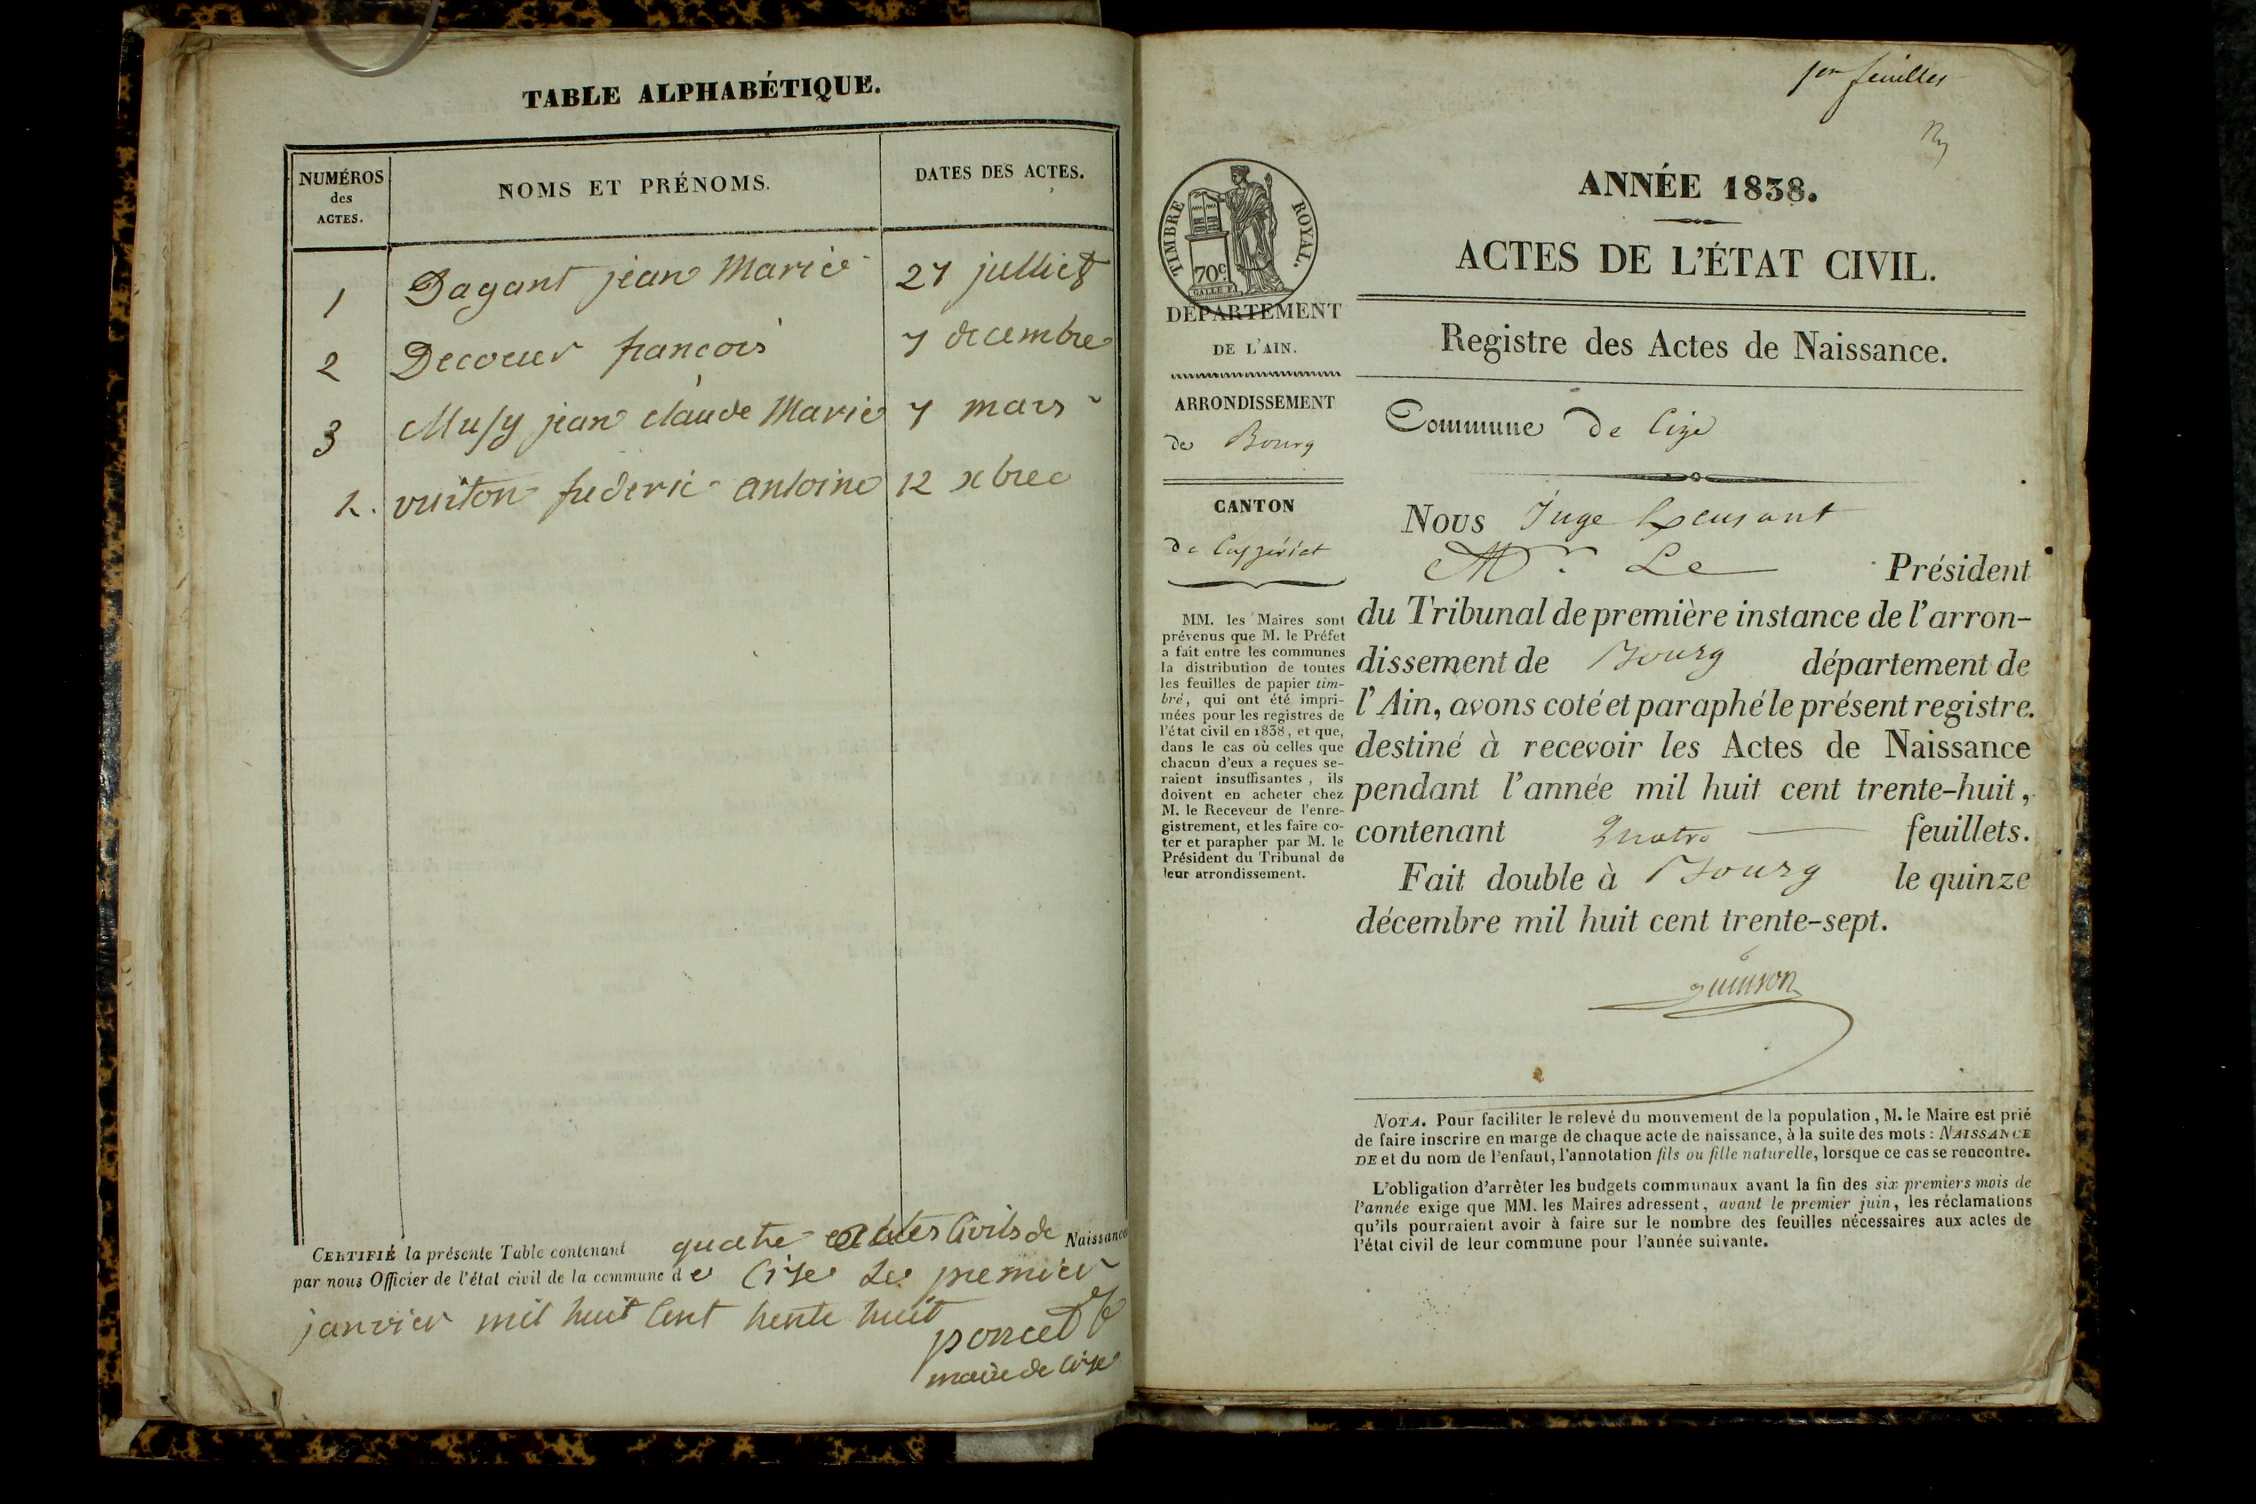 TABLE ALPHABÉTIQUE.
NUMÉROS
des
ACTES.
NOMS ET PRÉNOMS.
DATES DES ACTES.
1 Dagant jean Marie 27 julliet
2 Decoeur francois 7 decembre
3 Musy jean claude Marie 7 mars
vuiton frederic antoine 12 xbre
CERTIFIÉ la présente Table contenant quatre actes Civils de Naissance
par nous Officier de l'état civil de la commune de Cize Le premier
janvier mil huit Cent trente huit
poncet
maire de Cize
1er feuillet
ANNÉE 1838.
ACTES DE L'ÉTAT CIVIL.
Registre des Actes de Naissance.
Commune de Cize
TIMBRE ROYAL.
70c
GALLE F.
DÉPARTEMENT
DE L'AIN.
ARRONDISSEMENT
de Bourg
CANTON
de Ceyzériat
MM. les Maires sont
prévenus que M. le Préfet
a fait entre les communes
la distribution de toutes
les feuilles de papier tim-
bré, qui ont été impri-
mées pour les registres de
l'état civil en 1838, et que,
dans le cas où celles que
chacun d'eux a reçues se-
raient insuffisantes, ils
doivent en acheter chez
M. le Receveur de l'enre-
gistrement, et les faire co-
ter et parapher par M. le
Président du Tribunal de
leur arrondissement.
Nous Juge
Mr. Le Président
du Tribunal de première instance de l'arron-
dissement de Bourg département de
l'Ain, avons coté et paraphé le présent registre.
destiné à recevoir les Actes de Naissance
pendant l'année mil huit cent trente-huit,
contenant quatre feuillets.
Fait double à Bourg le quinze
décembre mil huit cent trente-sept.
quinson
NOTA. Pour faciliter le relevé du mouvement de la population, M. le Maire est prié
de faire inscrire en marge de chaque acte de naissance, à la suite des mots : NAISSANCE
DE et du nom de l'enfant, l'annotation fils ou fille naturelle, lorsque ce cas se rencontre.
L'obligation d'arrêter les budgets communaux avant la fin des six premiers mois de
l'année exige que MM. les Maires adressent, avant le premier juin, les réclamations
qu'ils pourraient avoir à faire sur le nombre des feuilles nécessaires aux actes de
l'état civil de leur commune pour l'année suivante.